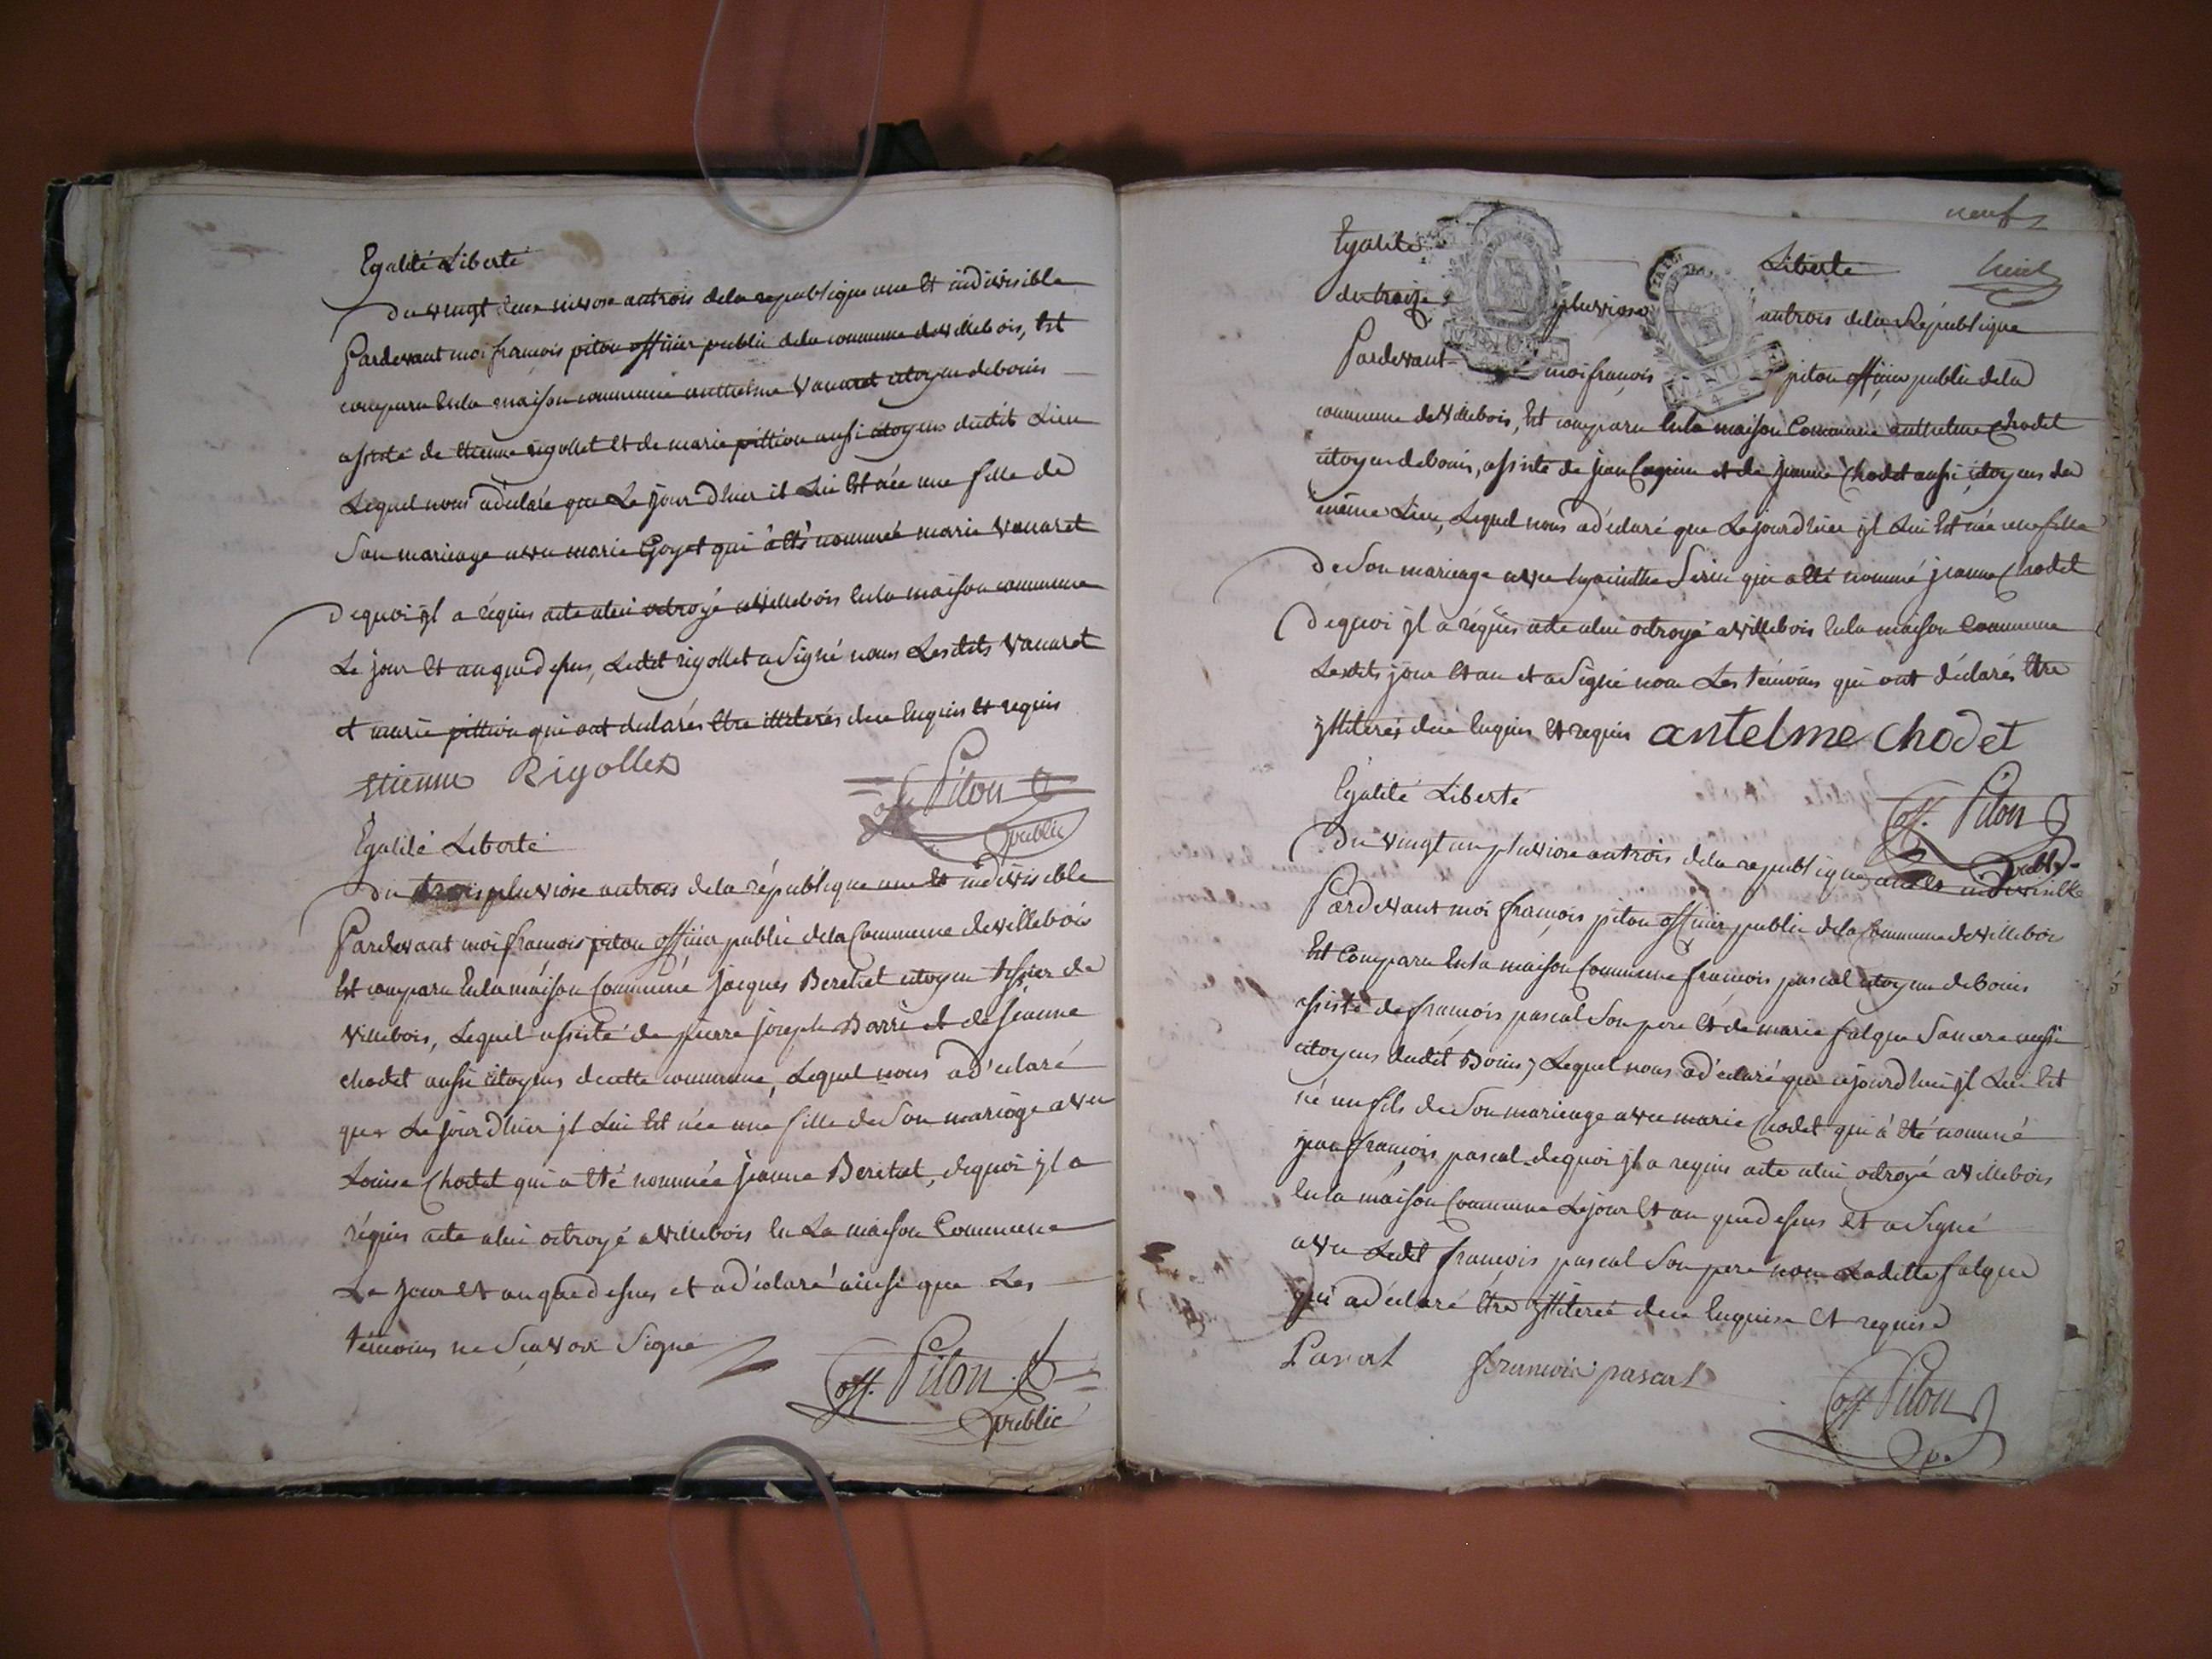 Egalité Liberté
Du vingt deux nivose antrois dela republique une Et indivisible
Pardevant moi francois piton officier public dela commune devillebois, Est
comparu Enla maison commune anthelme vanaret citoyen debouis
assisté de Etienne rigollet Et de marie pittion aussi citoyens dudit Lieu
Lequel nous adéclaré que Le jour d'hier il Lui Est née une fille de
Son mariage avec marie Goyet qui à Eté nommée marie vanaret
Dequoi jl a réquis acte alui octroyé avillebois Enla maison commune
Le jour Et anquedessus, Ledit rigollet a Signé nonus Lesdits vanaret
et marie pittion qui ont declarés Etre illiterés deue Enquis Et requis
Etienne Rigollet
off. Piton
public
Egalité Liberté
Du trois pluviose antrois dela république une Et indivisible
Pardevant moi francois piton officier public dela Commune devillebois
Est comparu Enlamaison Commune jacques Beretet citoyen tissier de
villebois, Lequel assisté de pierre joseph Barri et de jeanne
chodet aussi citoyens decette commune, Lequel nous adéclaré
que Lejour d'hier jl Lui Est née une fille deSon mariage avec
Louise Chodet qui a Eté nommée jeanne Beretet, dequoi jl a
réquis acte alui octroyé avillebois En La maison Commune
Le jour Et anquedessus et adéclaré ainsi que Les
témoins ne Scavoir Signé
off. Piton
public
neuf
Egalité Liberté
du treize pluviose antrois dela République
Pardevant moi francois piton officier public dela
commune devillebois, Est comparu Enla maison Commune anthelme Chodet
citoyen debouis, assisté de jean Cagnin et de jeanne Chodet aussi citoyens du
même Lieu, Lequel nous adéclaré que Lejourdhier jl Lui Est née une fille
DeSon mariage avec hyacinthe Serin qui a Eté nommé jeanne Chodet
Dequoi jl a réquis acte alui octroyé avillebois Enla maison Commune
Lesdits jour Et an et aSigné non Les témoins qui ont déclarés Etre
jlliterés deue Enquis Et requis antelme chodet
Egalité Liberté
off. Piton
public
Du vingt un pluviose antrois dela republique une Et indivisible
Pardevant moi francois piton officier public dela Commune devillebois
Est Comparu Enla maison Commune francois pascal citoyen debouis
assisté defrancois pascal Son pere Et de marie falque Samere aussi
citoyens dudit Bouis, Lequel nous adéclaré que cejourdhui jl Lui Est
né un fils deSon mariage avec marie Chodet qui à Eté nommé
jean francois pascal dequoi jl a requis acte alui octroyé avillebois
Enla maison Commune Lejour Et an quedessus Et aSigné
avec Ledit francois pascal Son pere non Ladite falque
qui adéclaré Etre jlliterée deue Enquise Et requise
Pascal francois pascal
off. Piton
p.